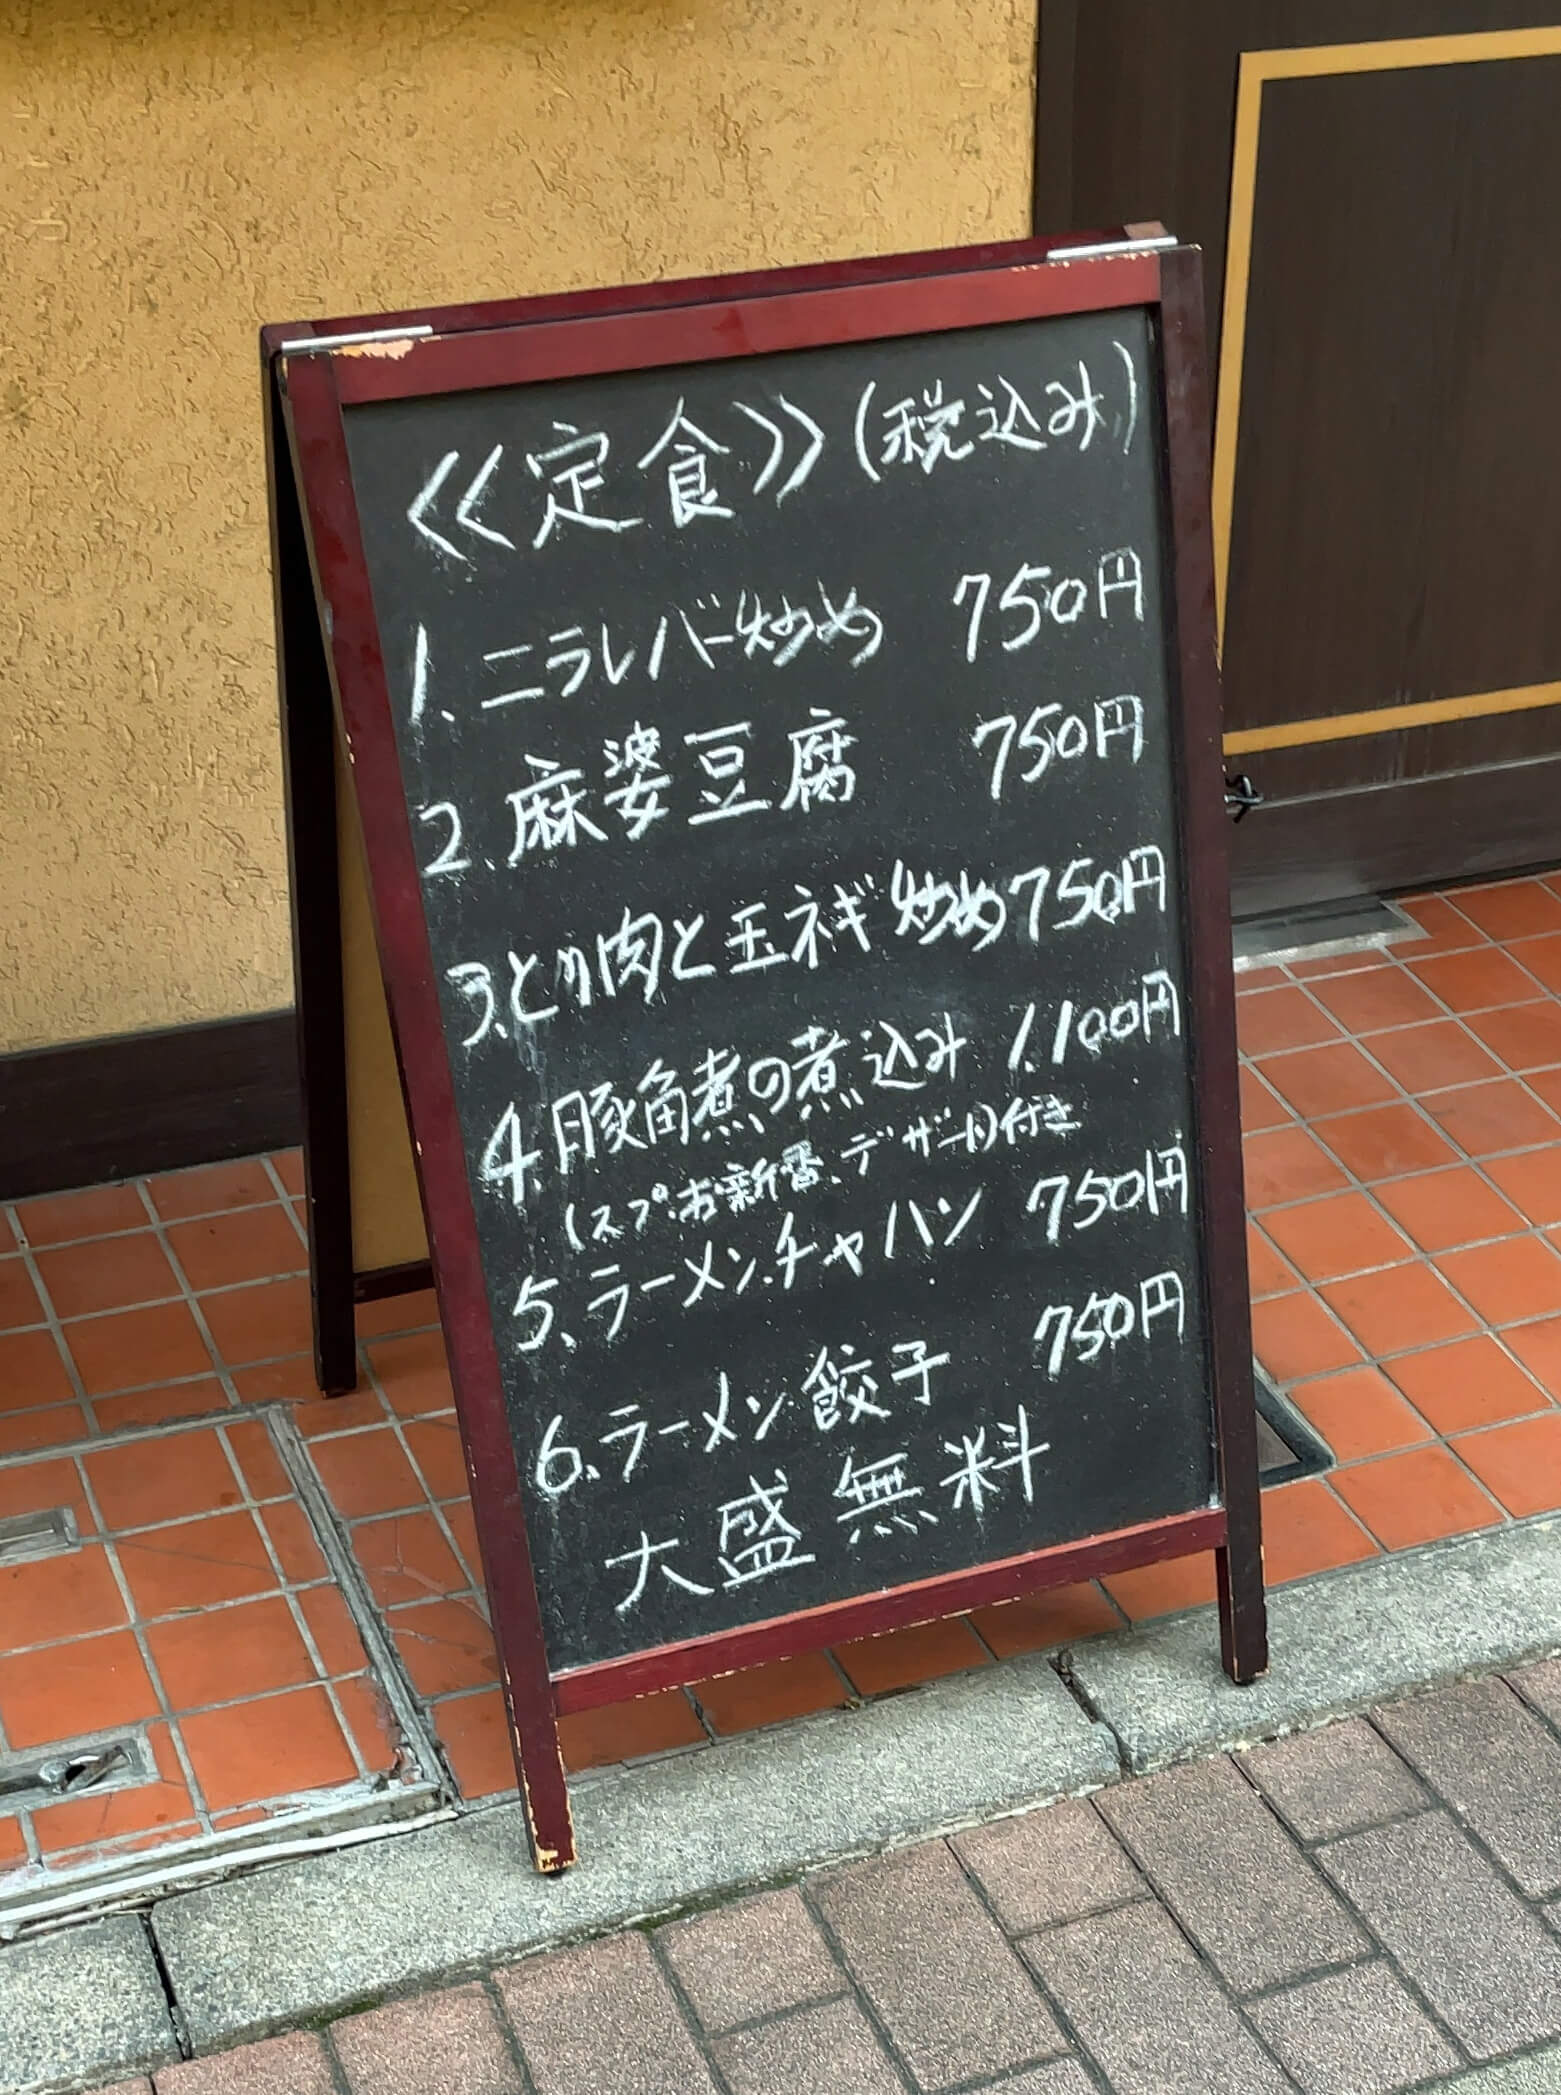 <<定食>>(税込み)
1、ニラレバー炒め 750円
2、麻婆豆腐 750円
3、とり肉と玉ネギ炒め 750円
4、豚角煮の煮込み 1.100円
(スプ.お新香、デザート)付き
5、ラーメン.チャハン 750円
6、ラーメン.餃子 750円
大盛無料